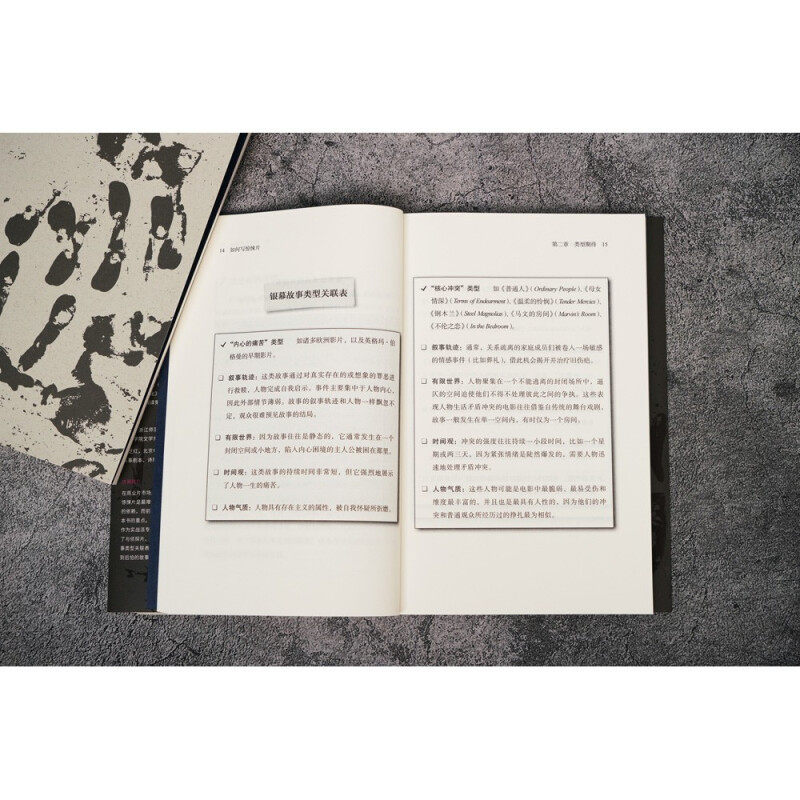 14 如何写惊悚片
银幕故事类型关联表
✓ “内心的痛苦”类型 如诸多欧洲影片，以及英格玛·伯
格曼的早期影片。
❏ 叙事轨迹：这类故事通过对真实存在的或想象的罪恶进
行救赎，人物完成自我启示。事件主要集中于人物内心，
因此外部情节薄弱。故事的叙事轨迹和人物一样飘忽不
定，观众很难预见故事的结局。
❏ 有限世界：因为故事往往是静态的，它通常发生在一个
封闭空间或小地方，陷入内心困境的主人公被困在那里。
❏ 时间观：这类故事的持续时间非常短，但它强烈地展示
了人物一生的痛苦。
❏ 人物气质：人物具有存在主义的属性，被自我怀疑所折磨。
第二章 类型期待 15
✓ “核心冲突”类型 如《普通人》（Ordinary People），《母女
情深》（Terms of Endearment），《温柔的怜悯》（Tender Mercies），
《钢木兰》（Steel Magnolias），《马文的房间》（Marvin's Room），
《不伦之恋》（In the Bedroom）。
❏ 叙事轨迹：通常，关系疏离的家庭成员们被卷入一场敏感
的情感事件（比如葬礼），借此机会揭开并治疗旧伤疤。
❏ 有限世界：人物聚集在一个不能逃离的封闭场所中，逼
仄的空间迫使他们不得不处理彼此之间的争执。这些表
现人物生活矛盾冲突的电影往往借鉴自传统的舞台戏剧，
故事一般发生在单一空间内，有时仅为一个房间。
❏ 时间观：冲突的强度往往持续一小段时间，比如一个星
期或两三天。因为紧张情绪是陡然爆发的，需要人物迅
速地处理矛盾冲突。
❏ 人物气质：这些人物可能是电影中最脆弱、最易受伤和
维度最丰富的，并且也是最具有人性的，因为他们的冲
突和普通观众所经历过的挣扎最为相似。
在商业片市场
惊悚片是最难
的依赖，而前
本书的重点，
作为实战派专
了与侦探片、
事类型关联表
到后怕的故事